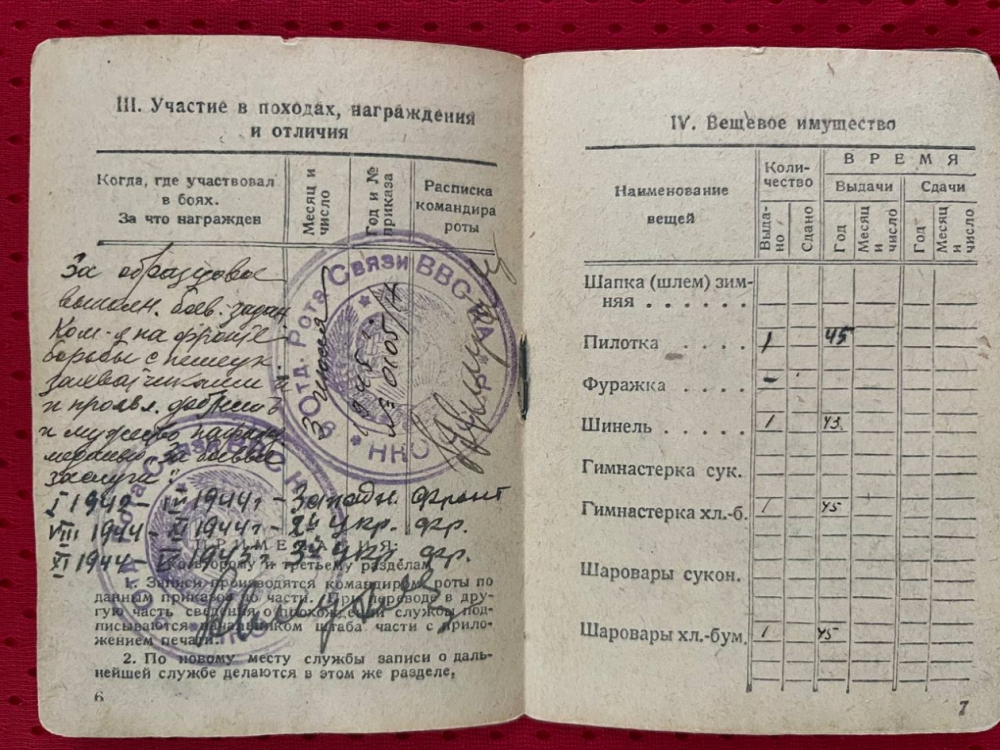 III. Участие в походах, награждения
и отличия
Когда, где участвовал
в боях.
За что награжден
Месяц и
число
Год и №
приказа
Расписка
командира
роты
За образцовое
выполн. боев. задан
Ком-я на фронте
борьбы с немецк
захватчиками и
и проявл. доблесть
и мужество награжд
медалью „за боевые
заслуги".
3 июня
1945 г.
№ 0105/Н
Отд. Рота Связи ВВС КА
НКО
Связи
НКО
I 1942 - IV 1944 г - Западн. фронт
VIII 1944 - XI 1944 г - 2й укр. фр.
XI 1944 - 1945 г. 3й укр фр.
ПРИМЕЧАНИЯ:
Ко второму и третьему разделам
1. Записи производятся командиром роты по
данным приказов по части. При переводе в дру-
гую часть сведения о прохождении службы под-
писываются начальником штаба части с прило-
жением печати.
2. По новому месту службы записи о даль-
нейшей службе делаются в этом же разделе,
6
IV. Вещевое имущество
Наименование
вещей
Коли-
чество
ВРЕМЯ
Выдачи
Сдачи
Выда-
но
Сдано
Год
Месяц
и
число
Год
Месяц
и
число
Шапка (шлем) зим-
няя . . . . . .
Пилотка . . . . 1 45
Фуражка . . . . -
Шинель . . . . . 1 43
Гимнастерка сук.
Гимнастерка хл.-б. 1 45
Шаровары сукон.
Шаровары хл.-бум. 1 45
7